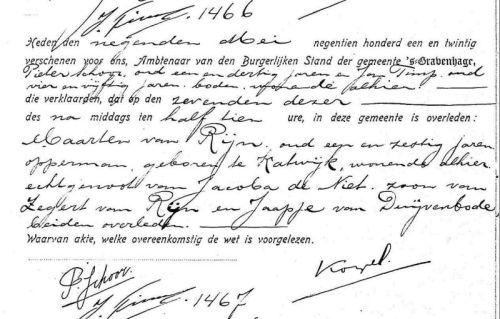 1466
Heden den negenden Mei negentien honderd een en twintig
verschenen voor ons, Ambtenaar van den Burgerlijken Stand der gemeente 's-Gravenhage,
Pieter Schoor, oud een en dertig jaren en Jan Timp, oud
vier en vijftig jaren, boden, wonende alhier,
die verklaarden, dat op den zevenden dezer
des na middags ten half tien ure, in deze gemeente is overleden:
Maarten van Rijn, oud een en zestig jaren,
opperman, geboren te Katwijk, wonende alhier,
echtgenoot van Jacoba de Niet, zoon van
Zegert van Rijn en Jaapje van Duijvenbode,
beiden overleden.
Waarvan akte, welke overeenkomstig de wet is voorgelezen.
P. Schoor.
1467